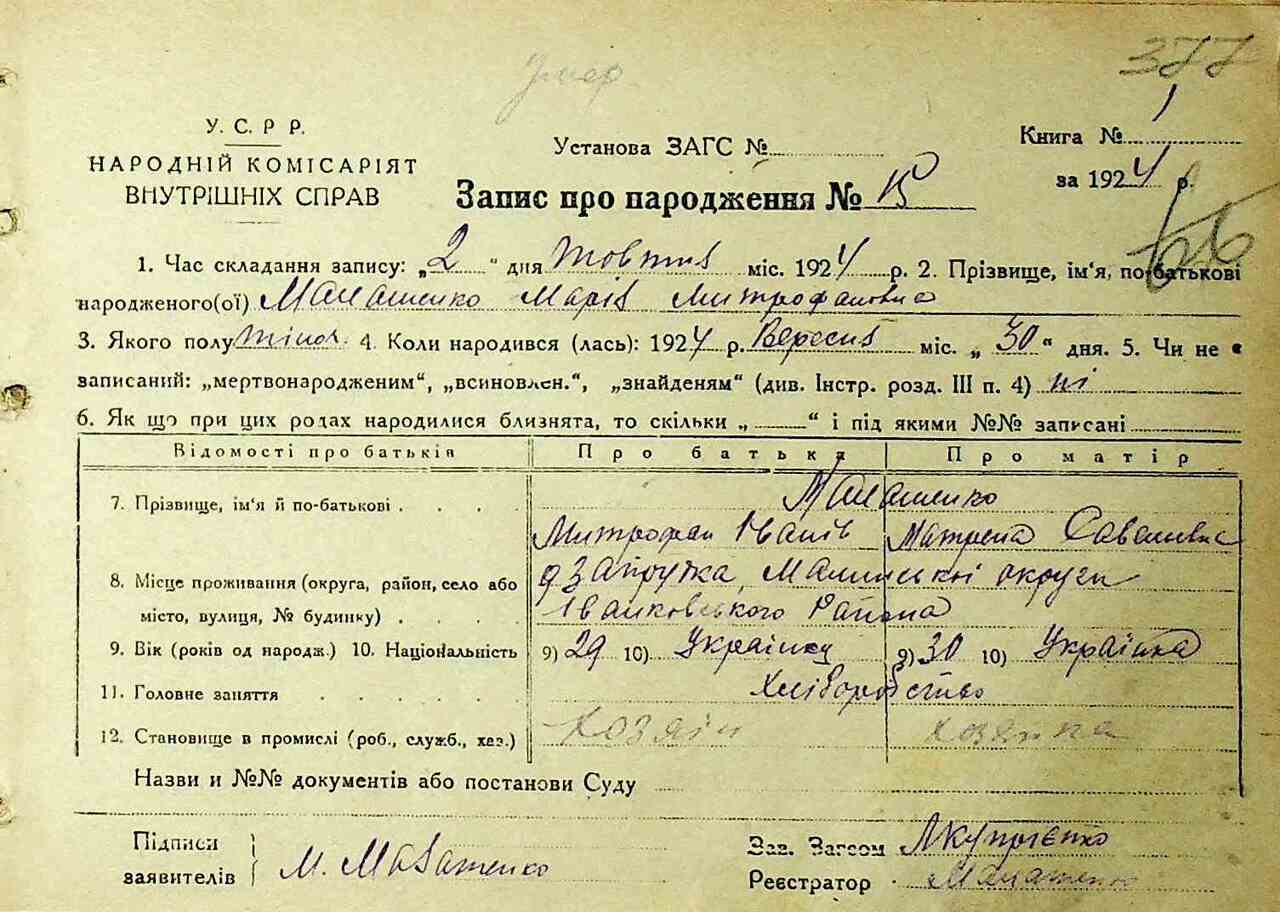 умер
377
У. С. Р Р.
НАРОДНІЙ КОМІСАРІЯТ
ВНУТРІШНІХ СПРАВ
Установа ЗАГС №
Книга № 1
за 1924 р.
Запис про народження № 15
66
1. Час складання запису: „2“ дня Жовтня міс. 1924 р. 2. Прізвище, ім‘я, по-батькові
народженого(ої) Малашенко Марія Митрофановна
3. Якого полу жіноч. 4. Коли народився (лась): 1924 р. Вересня міс. „30“ дня. 5. Чи не
записаний: „мертвонародженим“, „всиновлен.“, „знайденям“ (див. Інстр. розд. III п. 4) ні
6. Як що при цих родах народилися близнята, то скільки „ “ і під якими №№ записані
Відомості про батьків Про батька Про матір
7. Прізвище, ім‘я й по-батькові . . . . Малашенко
Митрофан Іванів Матрена Савелівна
8. Місце проживання (округа, район, село або д Запрудка, Малинської округи
місто, вулиця, № будинку) . . . . Іванковського Района
9. Вік (років од народж.) 10. Національність 9) 29 10) Українец 9) 30 10) Українка
11. Головне заняття . . . . Хліборобство
12. Становище в промислі (роб., служб., хаз.) Хозяїн Хозяйка
Назви и №№ документів або постанови Суду
Підписи
заявителів М. Малашенко
Зав. Загсом
Реєстратор Малашенко